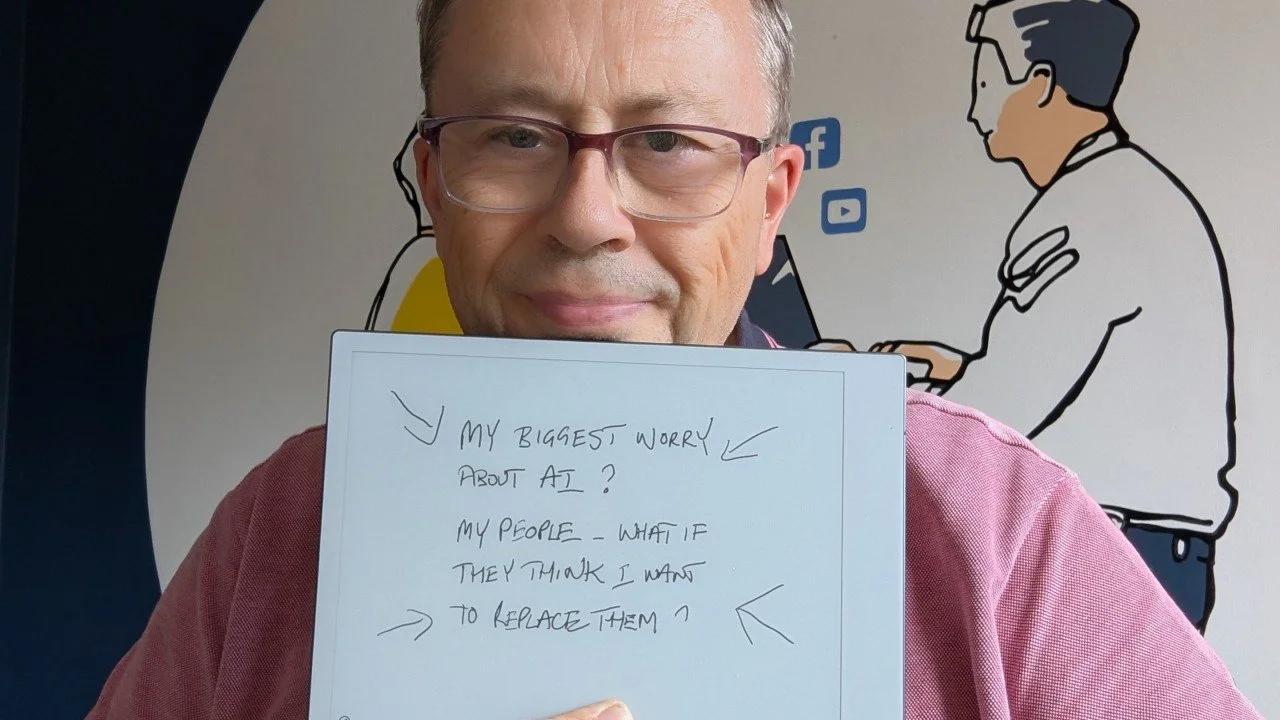 MY BIGGEST WORRY
ABOUT AI ?
MY PEOPLE - WHAT IF
THEY THINK I WANT
TO REPLACE THEM ?